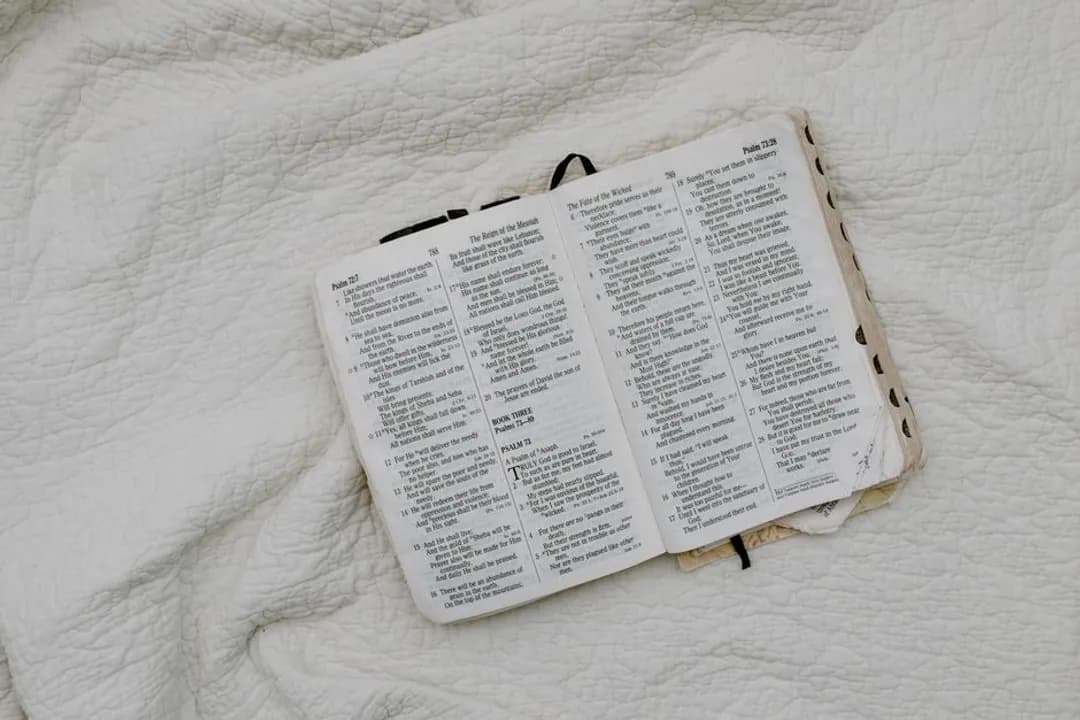 Psalm 72:7
788
The Reign of the Messiah
Like showers that water the earth.
7 In His days the righteous shall
flourish,
And abundance of peace,
Until the moon is no more.
8 He shall have dominion also from
sea to sea,
And from the River to the ends of
the earth.
9 Those who dwell in the wilderness
will bow before Him,
And His enemies will lick the
dust.
10 The kings of Tarshish and of the
isles
Will bring presents;
The kings of Sheba and Seba
Will offer gifts.
11 Yes, all kings shall fall down
before Him;
All nations shall serve Him.
12 For He will deliver the needy
when he cries,
The poor also, and him who has
no helper.
13 He will spare the poor and needy,
And will save the souls of the
needy.
14 He will redeem their life from
oppression and violence;
And precious shall be their blood
in His sight.
15 And He shall live;
And the gold of Sheba will be
given to Him;
Prayer also will be made for Him
continually,
And daily He shall be praised.
16 There will be an abundance of
grain in the earth,
On the top of the mountains;
Its fruit shall wave like Lebanon;
And those of the city shall flourish
like grass of the earth.
17 His name shall endure forever;
His name shall continue as long
as the sun.
And men shall be blessed in Him;
All nations shall call Him blessed.
18 Blessed be the LORD God, the God
of Israel,
Who only does wondrous things!
19 And blessed be His glorious
name forever!
And let the whole earth be filled
with His glory.
Amen and Amen.
20 The prayers of David the son of
Jesse are ended.
BOOK THREE
Psalms 73–89
PSALM 73
A Psalm of Asaph.
TRULY God is good to Israel,
To such as are pure in heart.
2 But as for me, my feet had almost
stumbled;
My steps had nearly slipped.
3 For I was envious of the boastful,
When I saw the prosperity of the
wicked.
4 For there are no pangs in their
death,
But their strength is firm.
5 They are not in trouble as other
men,
Nor are they plagued like other
men.
The Fate of the Wicked
Psalm 73:28
6 Therefore pride serves as their
necklace;
Violence covers them like a
garment.
7 Their eyes bulge with
abundance;
They have more than heart could
wish.
8 They scoff and speak wickedly
concerning oppression;
They speak loftily.
9 They set their mouth against the
heavens,
And their tongue walks through
the earth.
10 Therefore his people return here,
And waters of a full cup are
drained by them.
11 And they say, "How does God
know?
And is there knowledge in the
Most High?"
12 Behold, these are the ungodly,
Who are always at ease;
They increase in riches.
13 Surely I have cleansed my heart
in vain,
And washed my hands in
innocence.
14 For all day long I have been
plagued,
And chastened every morning.
15 If I had said, "I will speak
thus,"
Behold, I would have been untrue
to the generation of Your
children.
16 When I thought how to
understand this,
It was too painful for me—
17 Until I went into the sanctuary of
God;
Then I understood their end.
18 Surely You set them in slippery
places;
You cast them down to
destruction.
19 Oh, how they are brought to
desolation, as in a moment!
They are utterly consumed with
terrors.
20 As a dream when one awakes,
So, Lord, when You awake,
You shall despise their image.
21 Thus my heart was grieved,
And I was vexed in my mind.
22 I was so foolish and ignorant;
I was like a beast before You.
23 Nevertheless I am continually
with You;
You hold me by my right hand.
24 You will guide me with Your
counsel,
And afterward receive me to
glory.
25 Whom have I in heaven but
You?
And there is none upon earth that
I desire besides You.
26 My flesh and my heart fail;
But God is the strength of my
heart and my portion forever.
27 For indeed, those who are far from
You shall perish;
You have destroyed all those who
desert You for harlotry.
28 But it is good for me to draw near
to God;
I have put my trust in the Lord
GOD,
That I may declare
works.